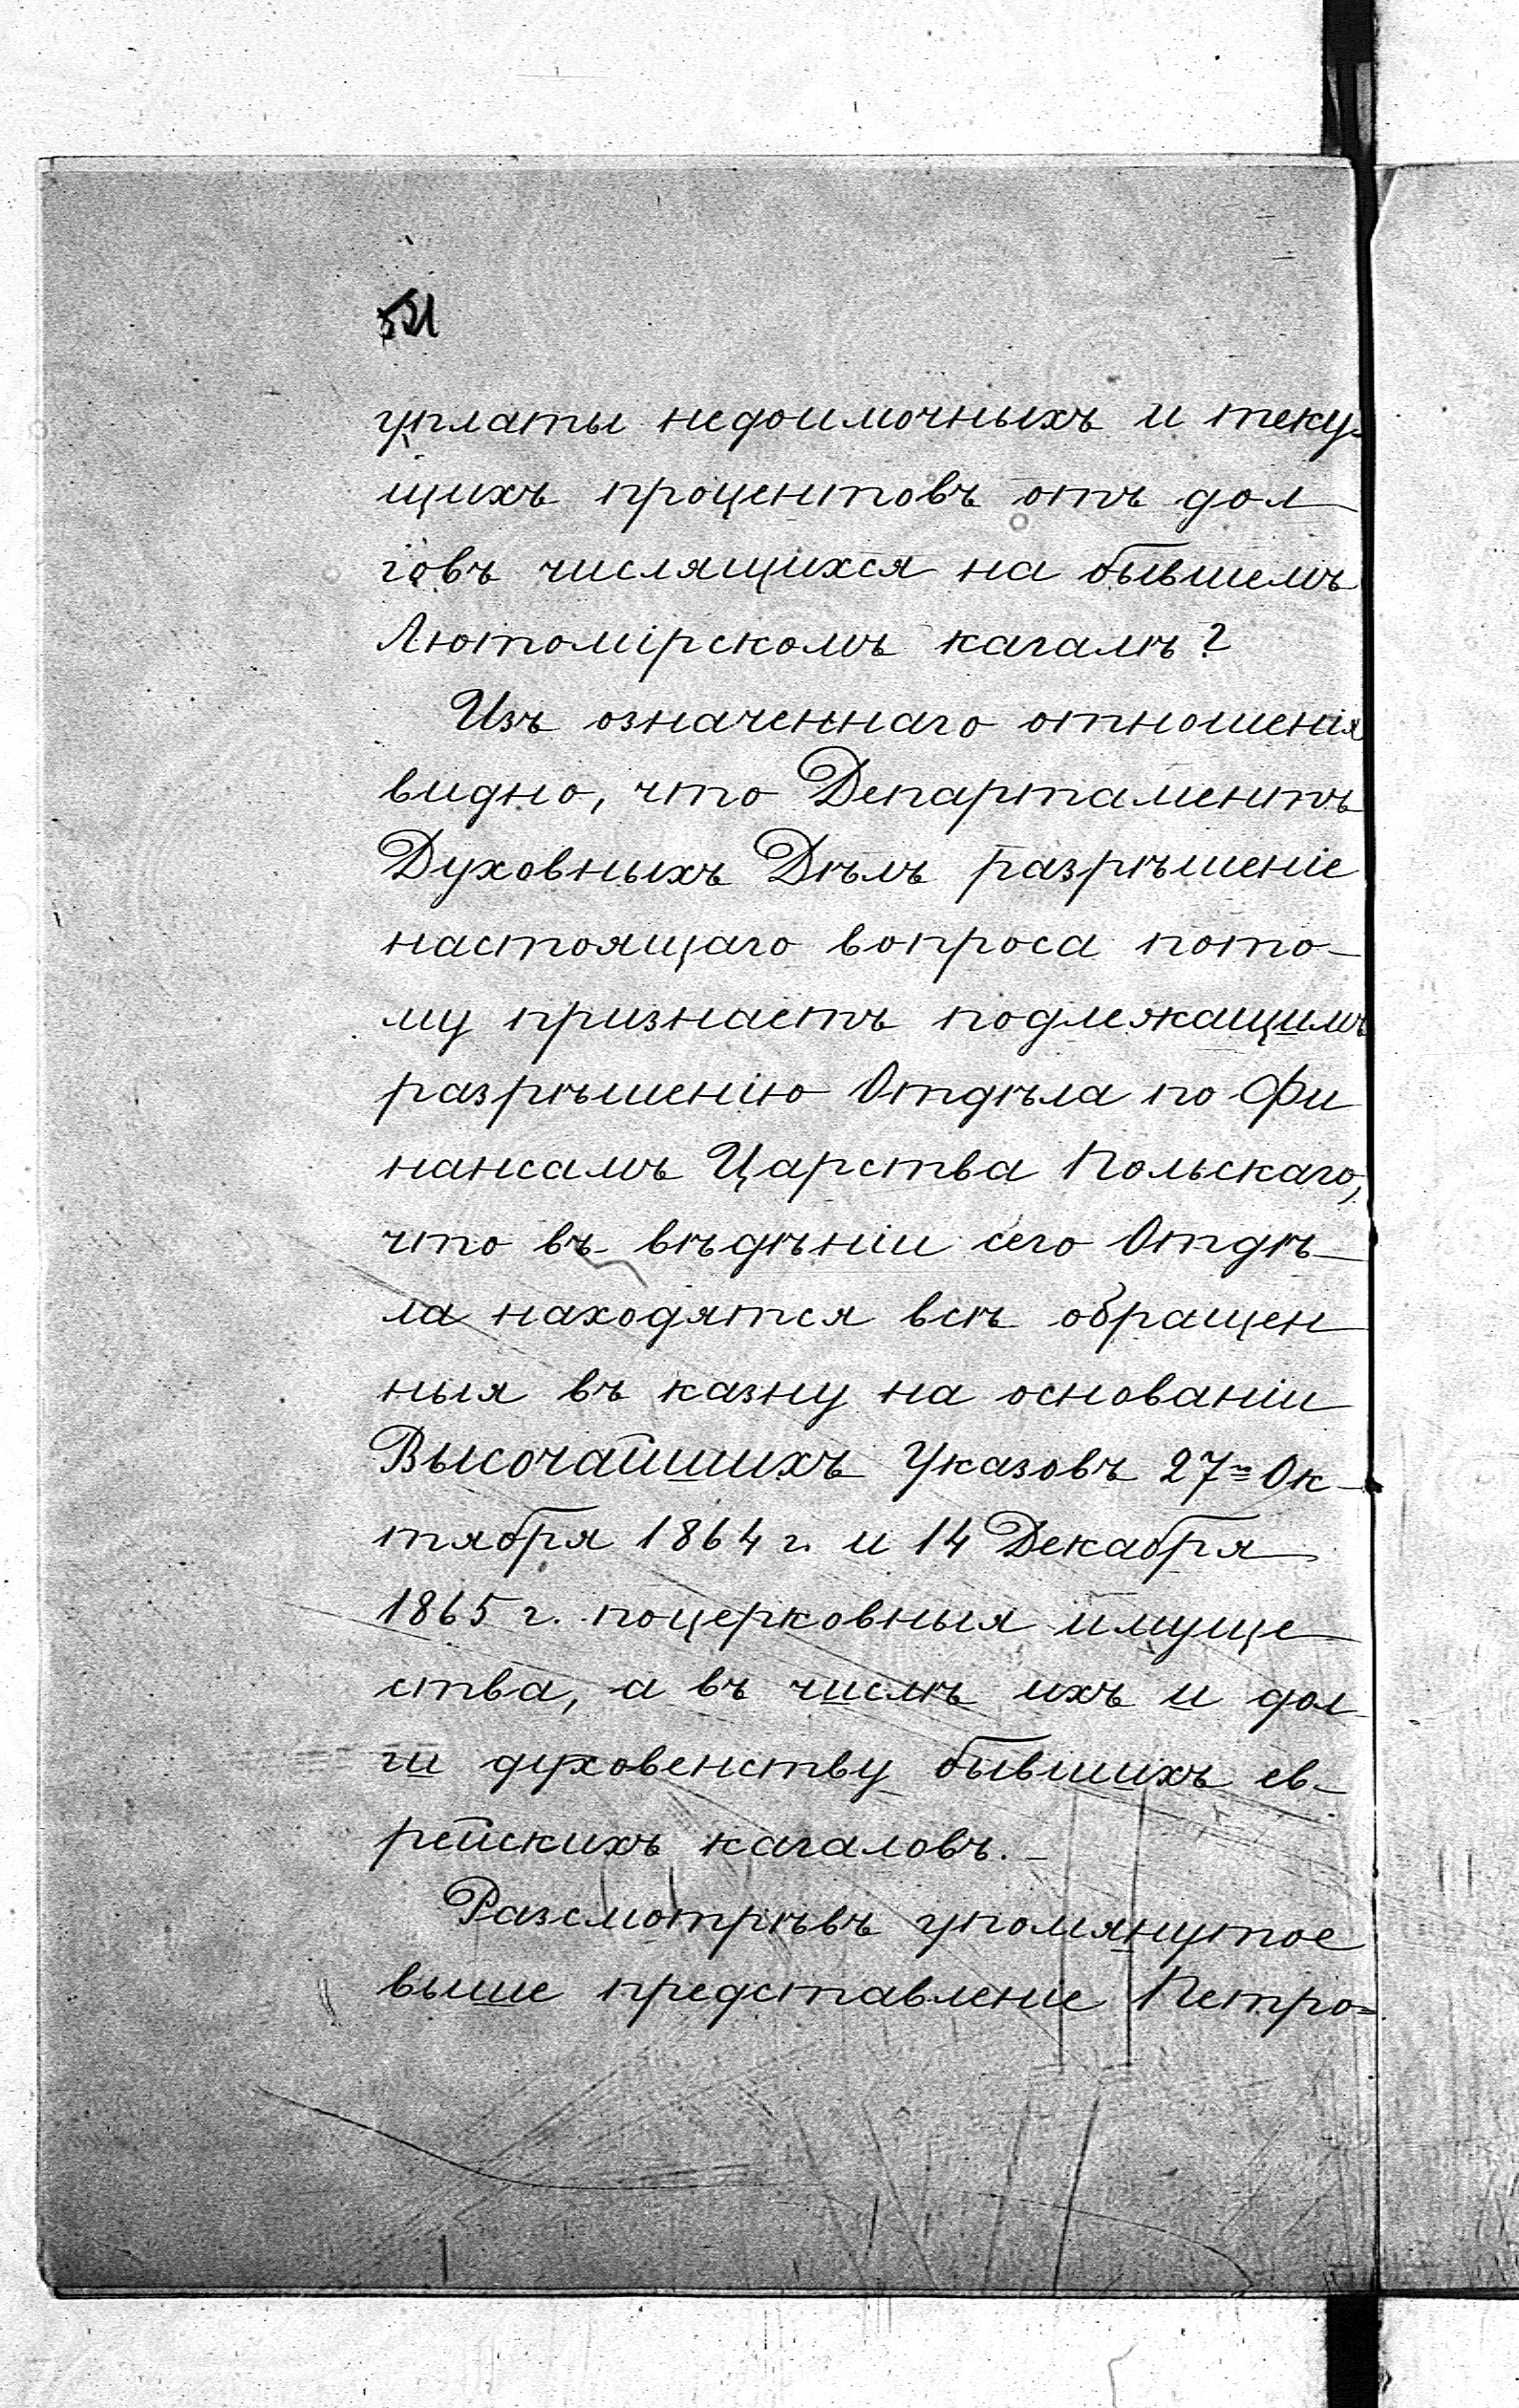 уплаты недоимочныхъ и теку-
щихъ процентовъ отъ дол
говъ числящихся на бывшемъ
Лютомірскомъ кагалѣ?
Изъ означеннаго отношенія
видно, что Департаментъ
Духовныхъ Дѣлъ разрѣшеніе
настоящаго вопроса пото-
му признаетъ подлежащимъ
разрѣшенію Отдѣла по Фи
нансамъ Царства Польскаго,
что въ вѣдѣніи сего Отдѣ-
ла находятся всѣ обращен
ныя въ казну на основаніи
Высочайшихъ Указовъ 27 Ок-
тября 1864 г. и 14 Декабря
1865 г. поцерковныя имуще
ства, а въ числѣ ихъ и дол
ги духовенству бывшихъ ев-
рейскихъ кагаловъ.-
Разсмотрѣвъ упомянутое
выше представленіе Петро=